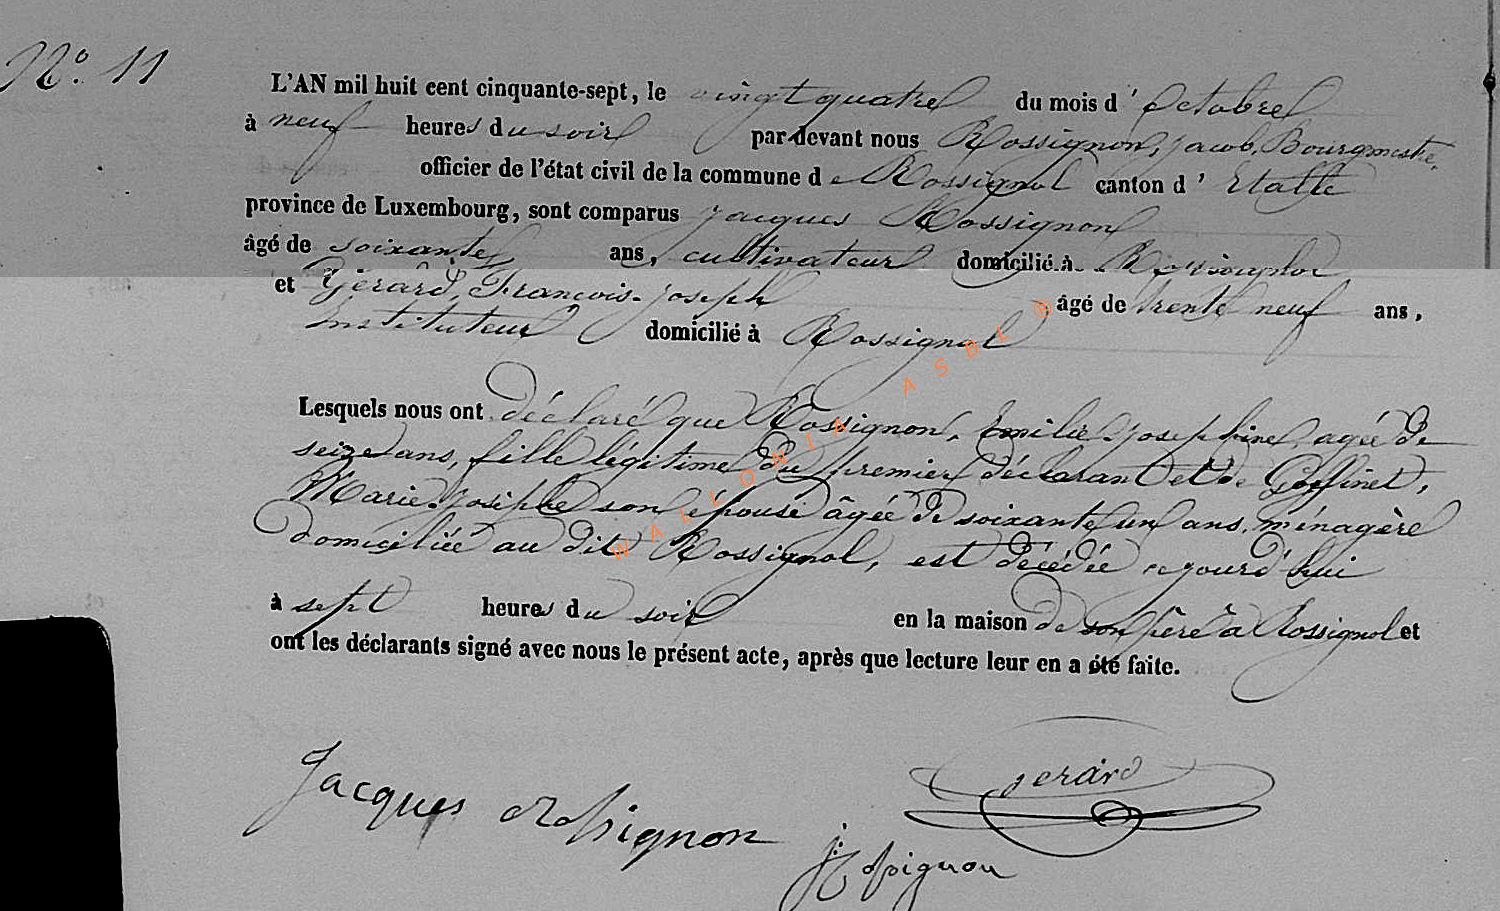 N.º 11
L'AN mil huit cent cinquante-sept, le vingt quatre du mois d'Octobre
à neuf heures du soir par devant nous Rossignon, Jacob, Bourgmestre,
officier de l'état civil de la commune de Rossignol canton d'Etalle
province de Luxembourg, sont comparus Jacques Rossignon
âgé de soixante ans, cultivateur domicilié à Rossignol
et Gérard, François-Joseph âgé de trente neuf ans,
instituteur domicilié à Rossignol
Lesquels nous ont déclaré que Rossignon, Emilie-Josephine, agée de
seize ans, fille légitime du premier déclarant et de Goffinet,
Marie-Josèphe son épouse âgée de soixante un ans, ménagère
domiciliée au dit Rossignol, est décédée aujourd'hui
à sept heures du soir en la maison de son père à Rossignol et
ont les déclarants signé avec nous le présent acte, après que lecture leur en a été faite.
WALLONIA ASBL ©
Jacques Rossignon
gerard
J. Rossignon